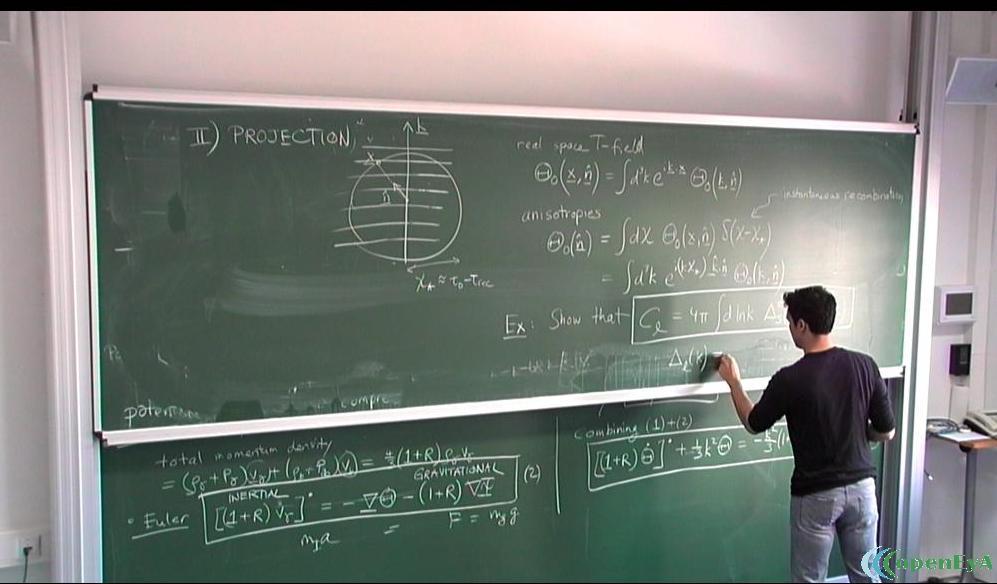 II) PROJECTION
k
x
n̂
χ* ≈ τ₀ - τ_rec
real space T-field
Θ₀(x, n̂) = ∫d³k e^{ik·x} Θ₀(k, n̂)
instantaneous recombination
anisotropies
Θ₀(n̂) = ∫dχ Θ₀(x, n̂) δ(χ-χ*)
= ∫d³k e^{i(kχ*) k̂·n̂} Θ₀(k, n̂)
Ex: Show that C_ℓ = 4π ∫d ln k Δ
Δ_ℓ(k) =
total momentum density
= (ρ_γ + P_γ) v_γ + (ρ_b + P_b) v_b = 4/3 (1+R) ρ_γ v_γ
INERTIAL
GRAVITATIONAL
• Euler [(1+R) v_γ]˙ = -∇Θ - (1+R) ∇Ψ (2)
m_I a = F = m_g g
combining (1)+(2)
[(1+R) Θ̇]˙ + 1/3 k² Θ = - k²/3 (1
openEyA